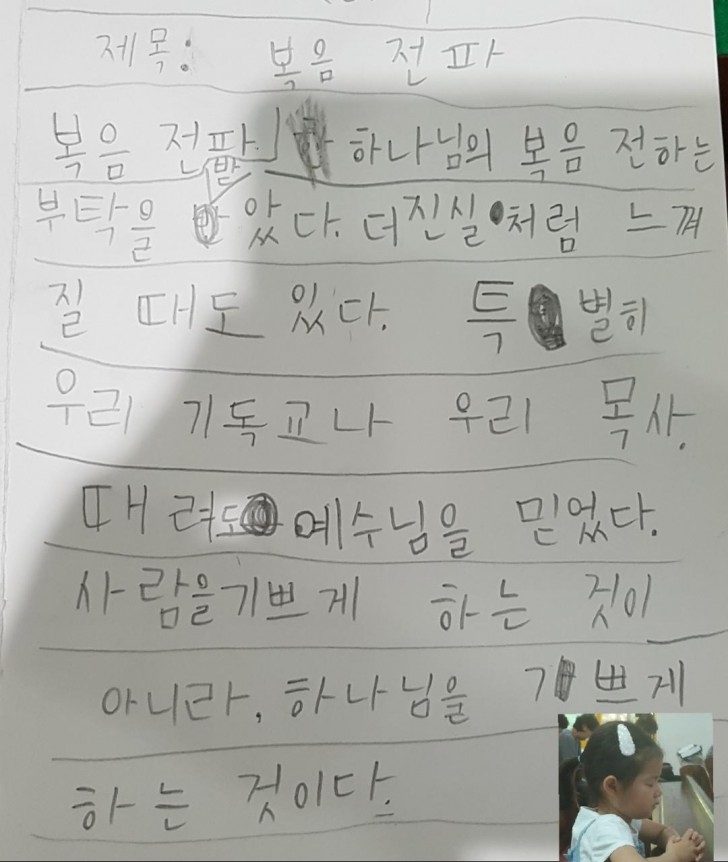 제목: 복음 전파
복음 전파. 하나님의 복음 전하는
부탁을 받았다. 더 진실처럼 느껴
질 때도 있다. 특별히
우리 기독교나 우리 목사.
때려도 예수님을 믿었다.
사람을 기쁘게 하는 것이
아니라, 하나님을 기쁘게
하는 것이다.